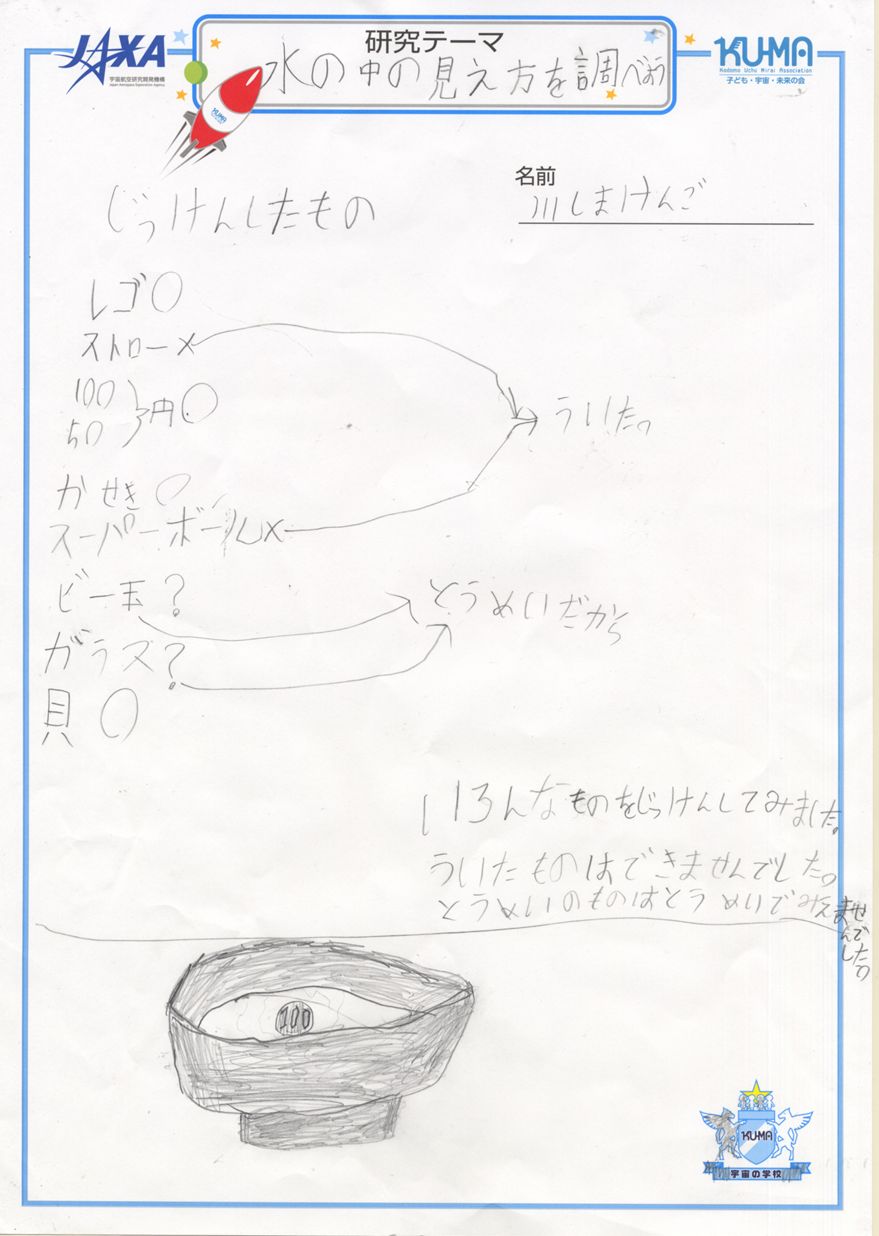 JAXA
宇宙航空研究開発機構
Japan Aerospace Exploration Agency
研究テーマ
水の中の見え方を調べよう
KU-MA
Kodomo Uchu Mirai Association
子ども・宇宙・未来の会
KUMA
名前
川しまけんご
じっけんしたもの
レゴ○
ストロー×
100
50
円○
ういた。
かせき○
スーパーボール×
ビー玉?
とうめいだから
ガラス?
貝 ○
いろんなものをじっけんしてみました。
ういたものはできませんでした。
とうめいのものはとうめいでみえませんでした。
100
KU-MA
宇宙の学校